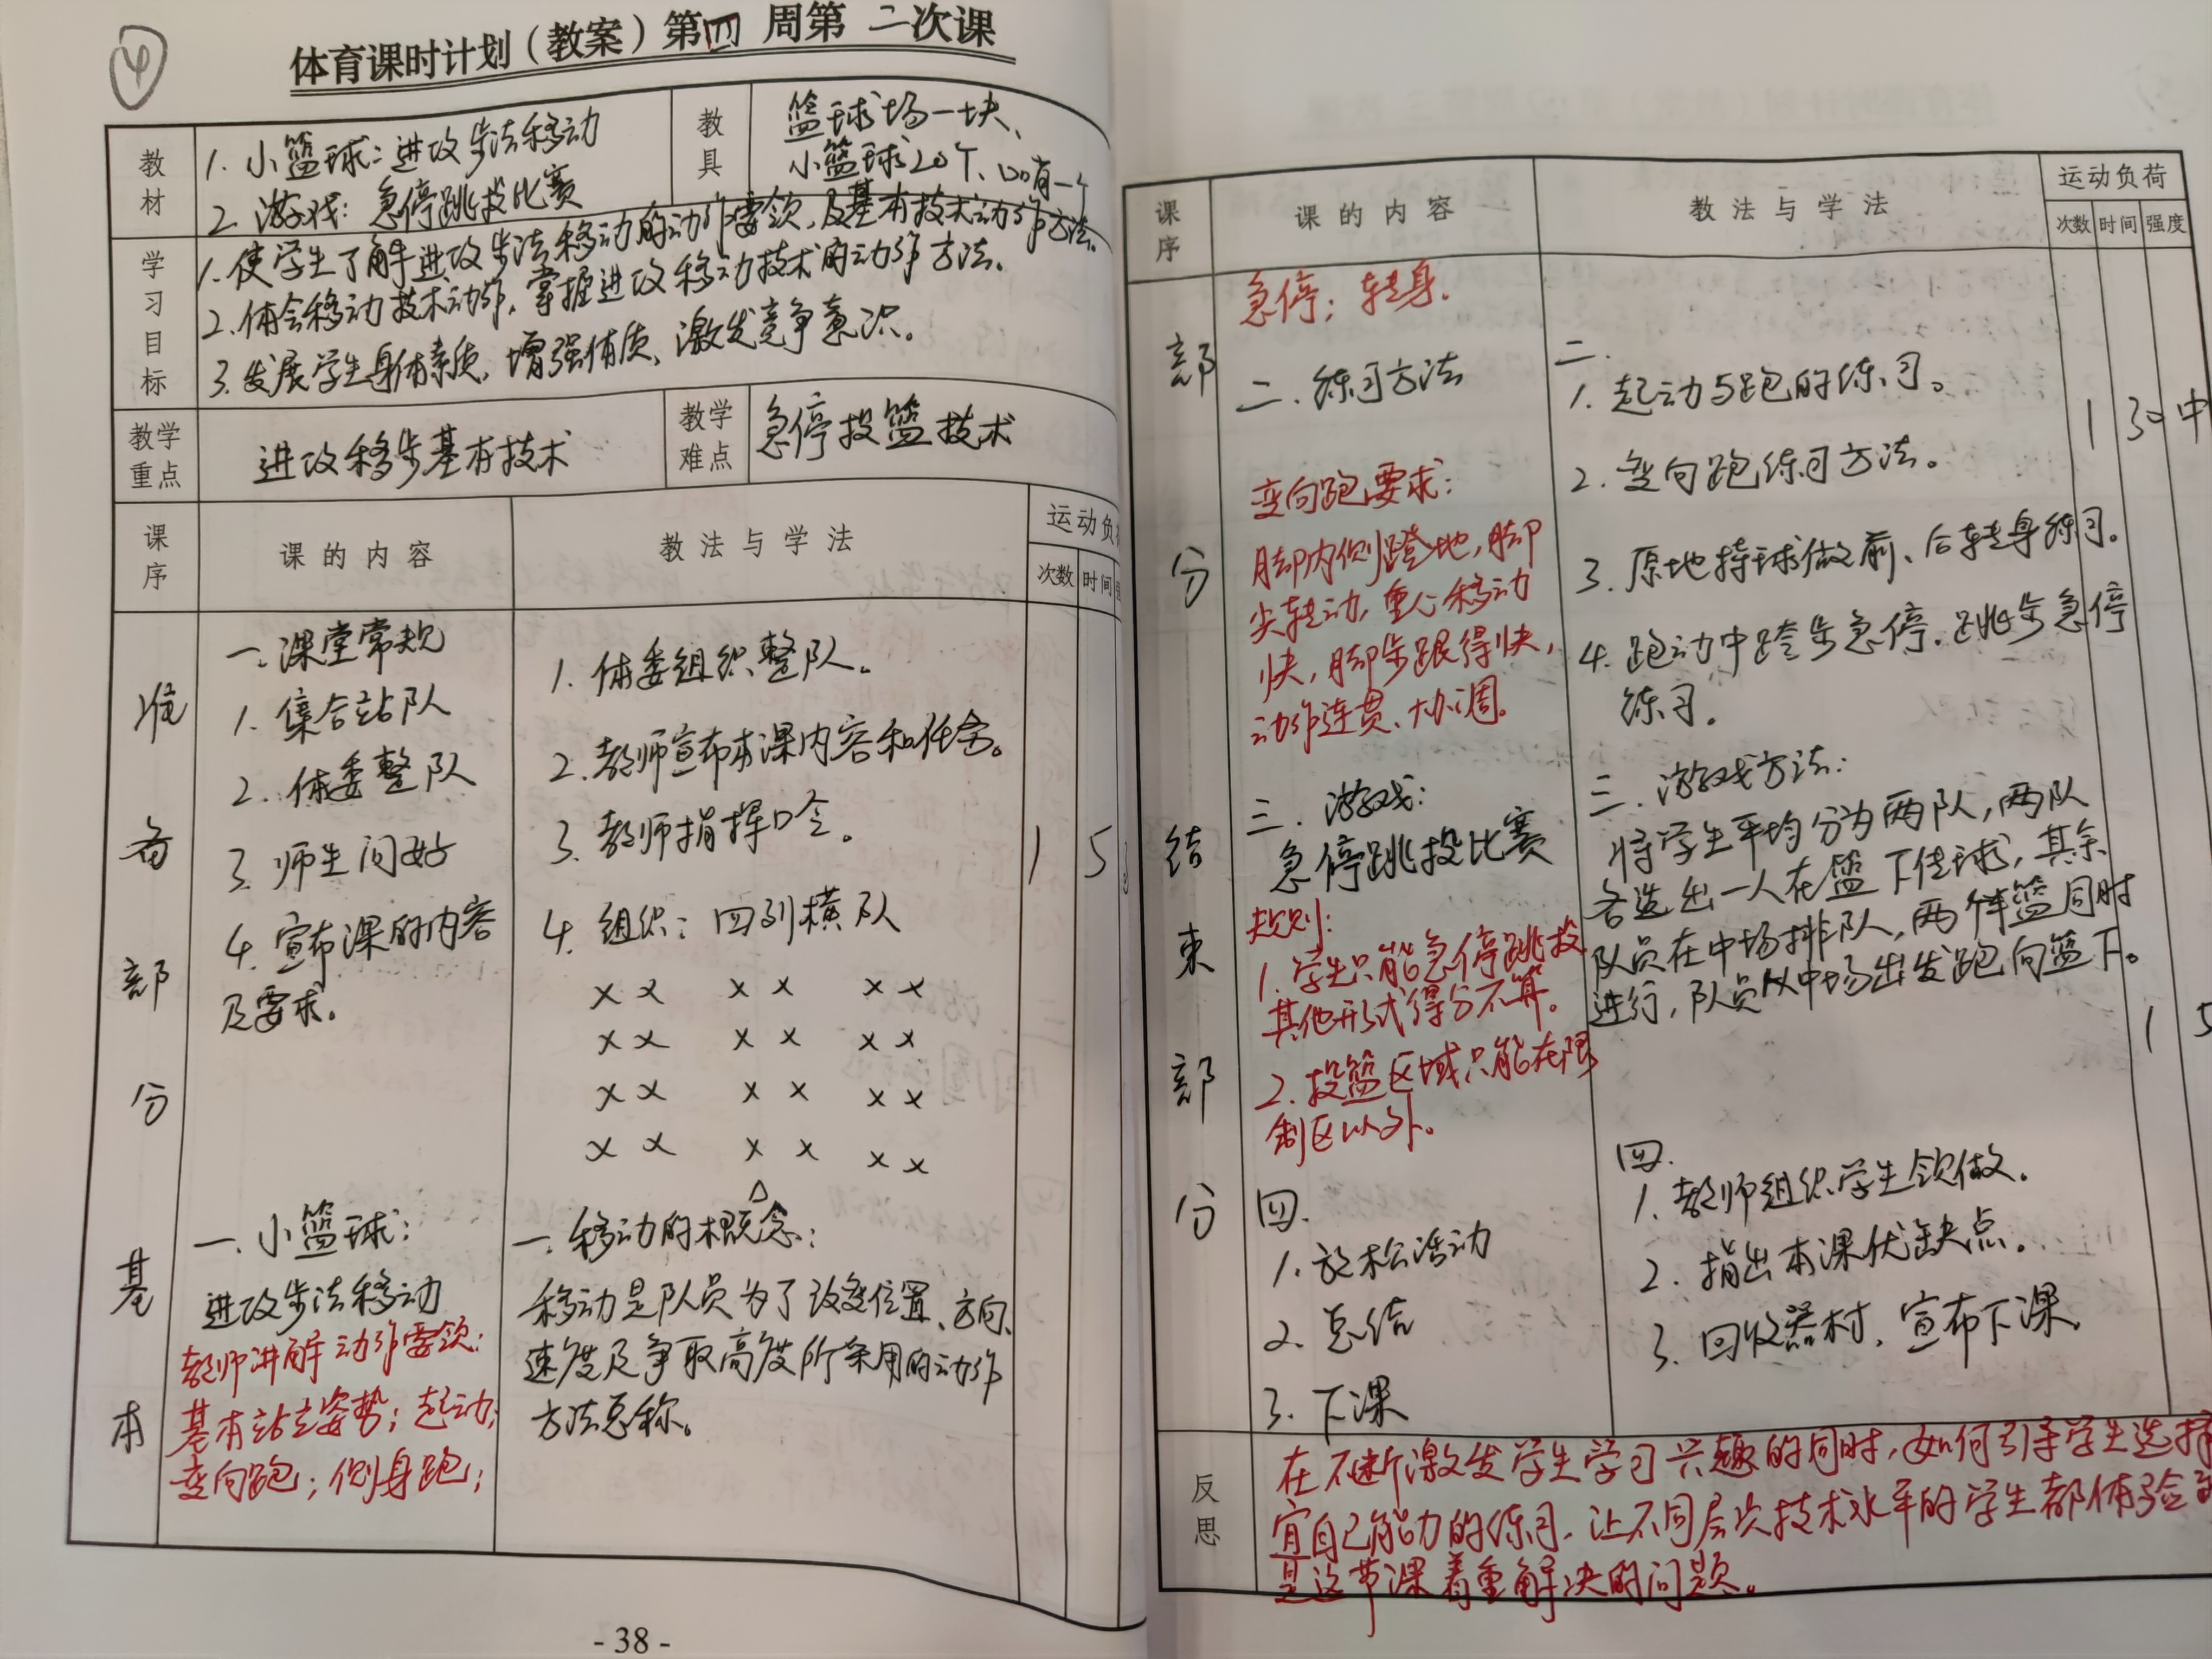 ④
体育课时计划（教案）第四 周第 二次课
教材
1. 小篮球：进攻步法移动
2. 游戏：急停跳投比赛
教具
篮球场一块、
小篮球20个、口哨一个
学习目标
1. 使学生了解进攻步法移动的动作要领，及基本技术动作方法。
2. 体会移动技术动作，掌握进攻移动技术的动作方法。
3. 发展学生身体素质、增强体质、激发竞争意识。
教学重点
进攻移步基本技术
教学难点
急停投篮技术
课序
课的内容
教法与学法
运动负
次数 时间
准备部分
一. 课堂常规
1. 集合站队
2. 体委整队
3. 师生问好
4. 宣布课的内容
及要求。
1. 体委组织整队。
2. 教师宣布本课内容和任务。
3. 教师指挥口令。
4. 组织：四列横队
× × × × × ×
× × × × × ×
× × × × × ×
× × × × × ×
△
1 5
基本
一. 小篮球：
进攻步法移动
教师讲解动作要领：
基本站立姿势；起动；
变向跑；侧身跑；
一. 移动的概念：
移动是队员为了改变位置、方向、
速度及争取高度所采用的动作
方法总称。
- 38 -
课序
课的内容
教法与学法
运动负荷
次数 时间 强度
部分
急停；转身.
二. 练习方法
变向跑要求：
脚内侧蹬地，脚
尖转动，重心移动
快，脚步跟得快，
动作连贯、协调。
二.
1. 起动与跑的练习。
2. 变向跑练习方法。
3. 原地持球做前、后转身练习。
4. 跑动中跨步急停、跳步急停
练习。
1 30 中
结束部分
三. 游戏：
急停跳投比赛
规则：
1. 学生只能急停跳投
其他形式得分不算。
2. 投篮区域只能在限
制区以外。
三. 游戏方法：
将学生平均分为两队，两队
各选出一人在篮下传球，其余
队员在中场排队，两个半篮同时
进行，队员从中场出发跑向篮下。
1 5
四.
1. 放松活动
2. 总结
3. 下课
四.
1. 教师组织学生领做。
2. 指出本课优缺点。
3. 回收器材，宣布下课
反思
在不断激发学生学习兴趣的同时，如何引导学生选择
宜自己能力的练习，让不同层次技术水平的学生都体验
是这节课着重解决的问题。